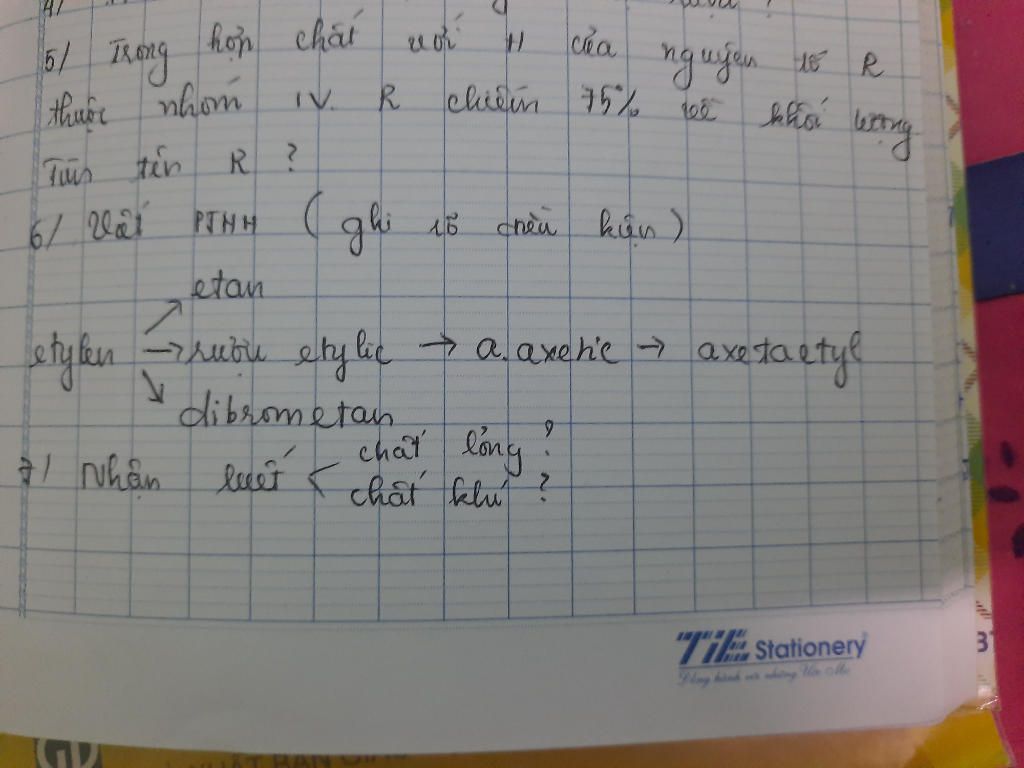 4/
5/ Trong hợp chất với H của nguyên tố R
thuộc nhóm IV. R chiếm 75% về khối lượng
Tìm tên R ?
6/ Viết PTHH ( ghi rõ điều kiện )
etan
etylen → rượu etylic → a. axetic → axetaetyl
dibrometan
7/ Nhận biết < chất lỏng ?
chất khí ?
TiE Stationery
Đồng hành với những Ước Mơ